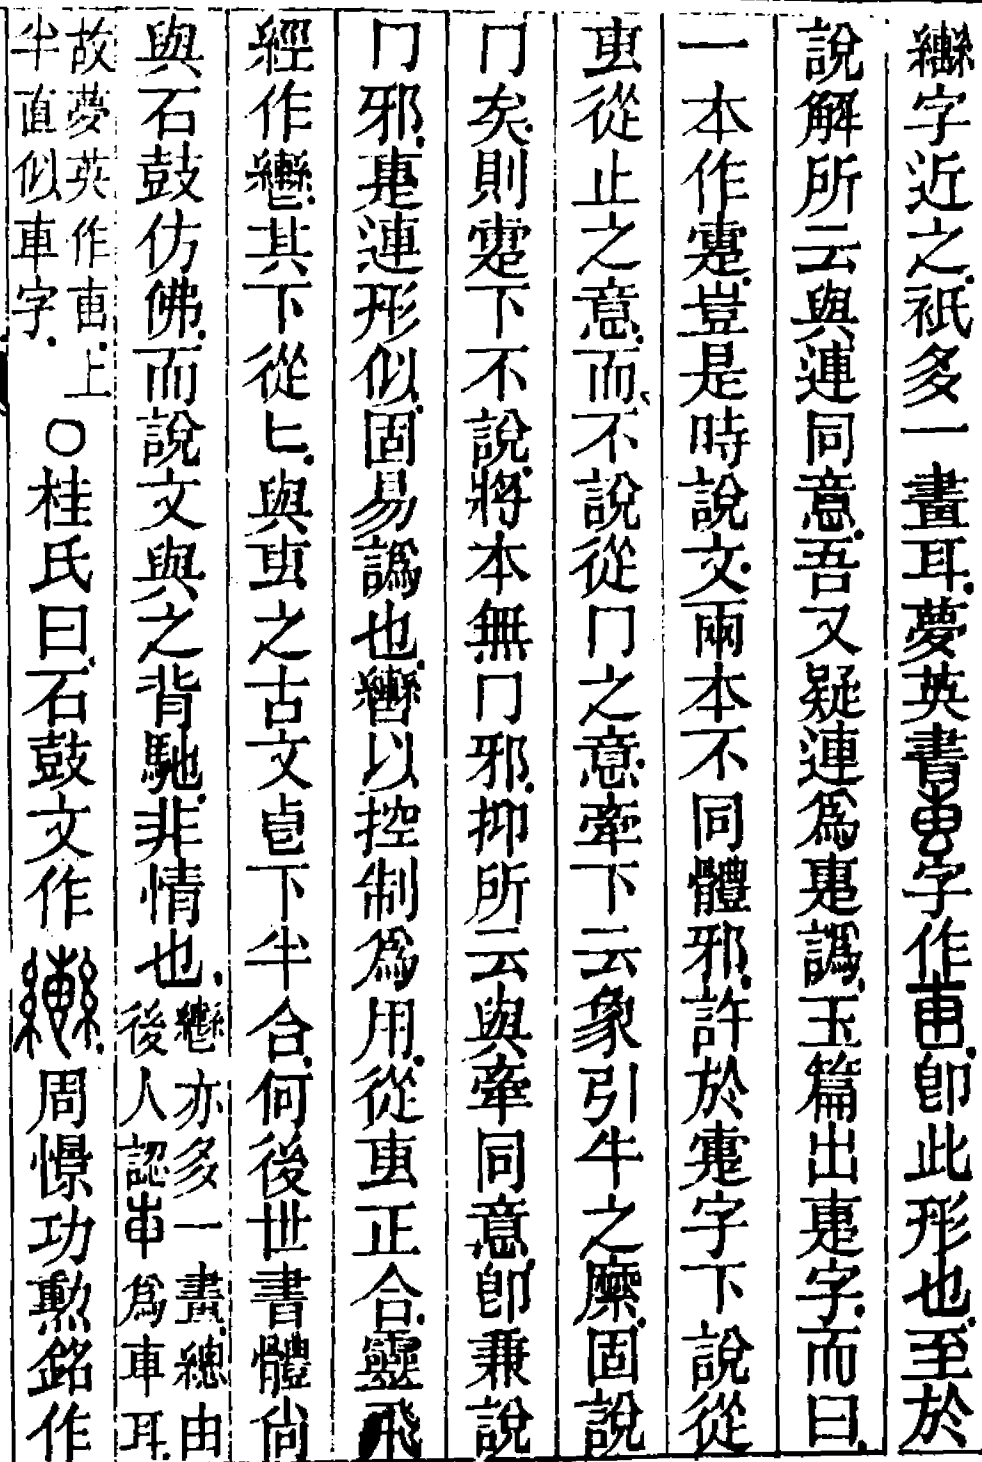 字近之衹多一畫耳夢英書叀字作𤰔卽此形也至於
說解所云與連同意吾又疑連爲疐譌玉篇出疐字而曰
一本作疐豈是時說文兩本不同體邪許於疐字下說從
叀從止之意而不說從冂之意牽下云象引牛之縻固說
冂矣則疐下不說將本無冂邪抑所云與牽同意卽兼說
冂邪疐連形似固易譌也轡以控制爲用從叀正合靈飛
經作轡其下從匕與叀之古文㔽下半合何後世書體尙
與石鼓仿佛而說文與之背馳非情也轡亦多一畫總由
後人認𤰔爲車耳
故夢英作𤰔上
半直似車字○桂氏曰石鼓文作周憬功勲銘作